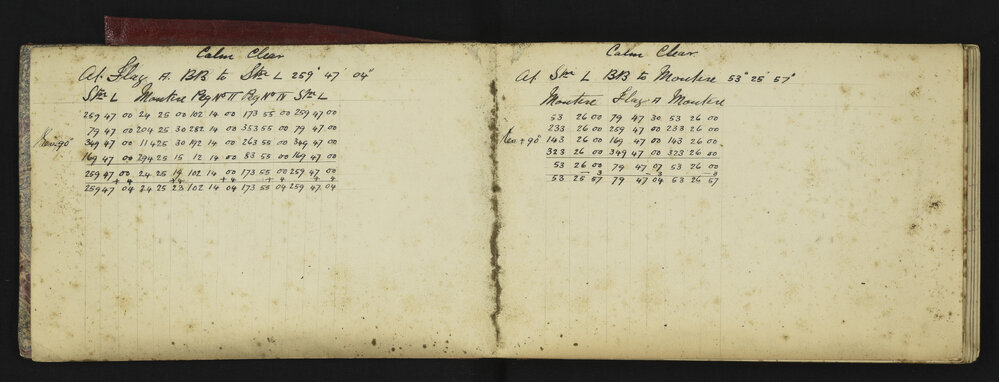 Calm Clear
At Flag A. BB to Stn L 259° 47' 04"
Stn L Montire Peg No II Peg No IV Stn L
259 47 00 24 25 00 102 14 00 173 55 00 259 47 00
79 47 00 204 25 30 282 14 00 353 55 00 79 47 00
349 47 00 114 25 30 192 14 00 263 55 00 349 47 00
169 47 00 294 25 15 12 14 00 83 55 00 169 47 00
259 47 00 24 25 19 102 14 00 173 55 00 259 47 00
+ 4 + 4 + 4 + 4 + 4
259 47 04 24 25 23 102 14 04 173 55 04 259 47 04
Calm Clear
At Stn L BB to Montire 53° 25' 57"
Montire Flag A Montire
53 26 00 79 47 30 53 26 00
233 26 00 259 47 00 233 26 00
+ 90° 143 26 00 169 47 00 143 26 00
323 26 00 349 47 00 323 26 00
53 26 00 79 47 07 53 26 00
3 3 3
53 25 57 79 47 04 53 25 57